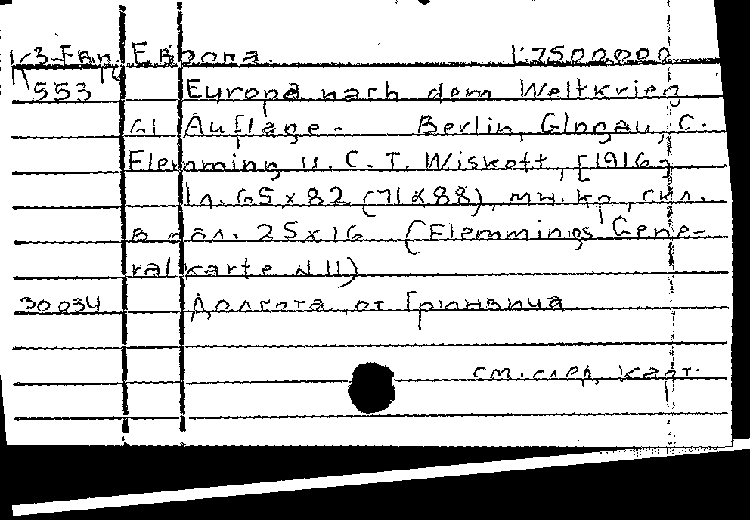 К3-Евр Европа. 1:7500000
553 Europa nach dem Weltkrieg
61 Auflage. Berlin, Glogau, C.
Flemming u. C. T. Wiskott, [1916]
1л. 65x82 (71x88), мн. кр., скл.
в обл. 25x16 (Flemmings Gene-
ralkarte N 11)
30034 Долгота от Гринвича
см. след. карт.